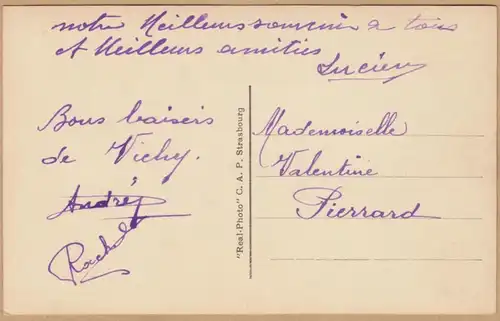 notre Meilleurs souvenir a tous
et Meilleurs amities
Lucien
Bons baisers
de Vichy.
André
"Real-Photo" C. A. P. Strasbourg
Mademoiselle
Valentine
Pierrard